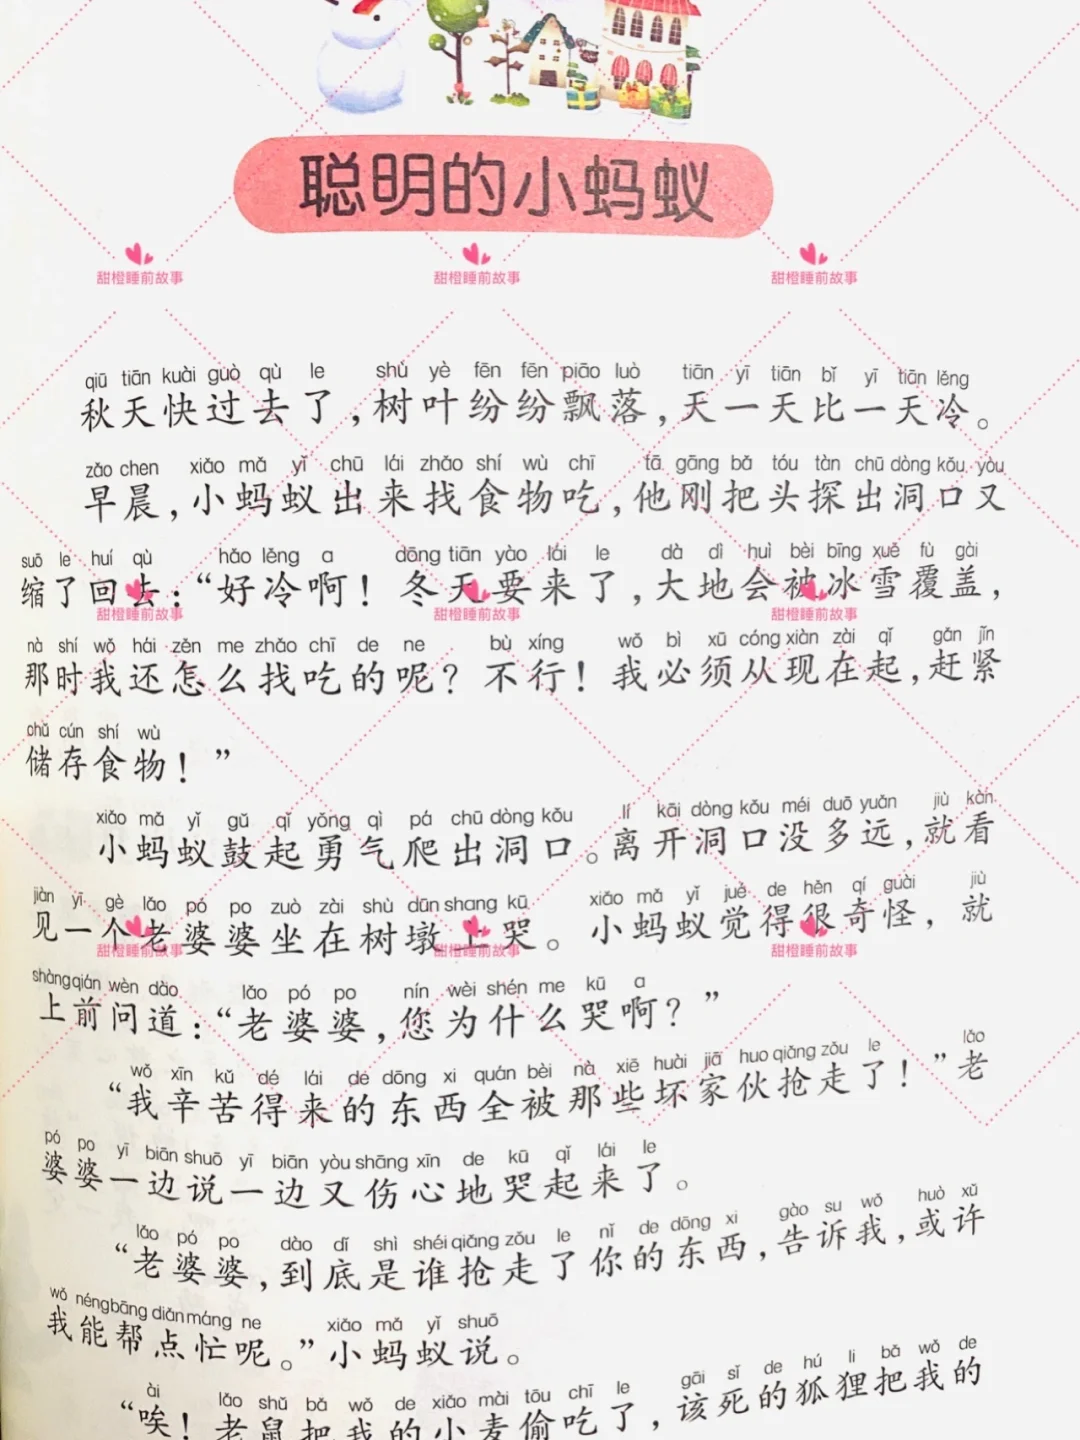 聪明的小蚂蚁
甜橙睡前故事 甜橙睡前故事 甜橙睡前故事
qiū tiān kuài guò qù le shù yè fēn fēn piāo luò tiān yī tiān bǐ yī tiān lěng
秋天快过去了，树叶纷纷飘落，天一天比一天冷。
zǎo chen xiǎo mǎ yǐ chū lái zhǎo shí wù chī tā gāng bǎ tóu tàn chū dòng kǒu yòu
早晨，小蚂蚁出来找食物吃，他刚把头探出洞口又
suō le huí qù hǎo lěng a dōng tiān yào lái le dà dì huì bèi bīng xuě fù gài
缩了回去：“好冷啊！冬天要来了，大地会被冰雪覆盖，
甜橙睡前故事 甜橙睡前故事 甜橙睡前故事
nà shí wǒ hái zěn me zhǎo chī de ne bù xíng wǒ bì xū cóng xiàn zài qǐ gǎn jǐn
那时我还怎么找吃的呢？不行！我必须从现在起，赶紧
chǔ cún shí wù
储存食物！”
xiǎo mǎ yǐ gǔ qǐ yǒng qì pá chū dòng kǒu lí kāi dòng kǒu méi duō yuǎn jiù kàn
小蚂蚁鼓起勇气爬出洞口。离开洞口没多远，就看
jiàn yī gè lǎo pó po zuò zài shù dūn shang kū xiǎo mǎ yǐ jué de hěn qí guài jiù
见一个老婆婆坐在树墩上哭。小蚂蚁觉得很奇怪，就
甜橙睡前故事 甜橙睡前故事 甜橙睡前故事
shàng qián wèn dào lǎo pó po nín wèi shén me kū a
上前问道：“老婆婆，您为什么哭啊？”
wǒ xīn kǔ dé lái de dōng xi quán bèi nà xiē huài jiā huo qiǎng zǒu le lǎo
“我辛苦得来的东西全被那些坏家伙抢走了！”老
pó po yī biān shuō yī biān yòu shāng xīn de kū qǐ lái le
婆婆一边说一边又伤心地哭起来了。
lǎo pó po dào dǐ shì shéi qiǎng zǒu le nǐ de dōng xi gào su wǒ huò xǔ
“老婆婆，到底是谁抢走了你的东西，告诉我，或许
wǒ néng bāng diǎn máng ne xiǎo mǎ yǐ shuō
我能帮点忙呢。”小蚂蚁说。
ài lǎo shǔ bǎ wǒ de xiǎo mài tōu chī le gāi sǐ de hú li bǎ wǒ de
“唉！老鼠把我的小麦偷吃了，该死的狐狸把我的